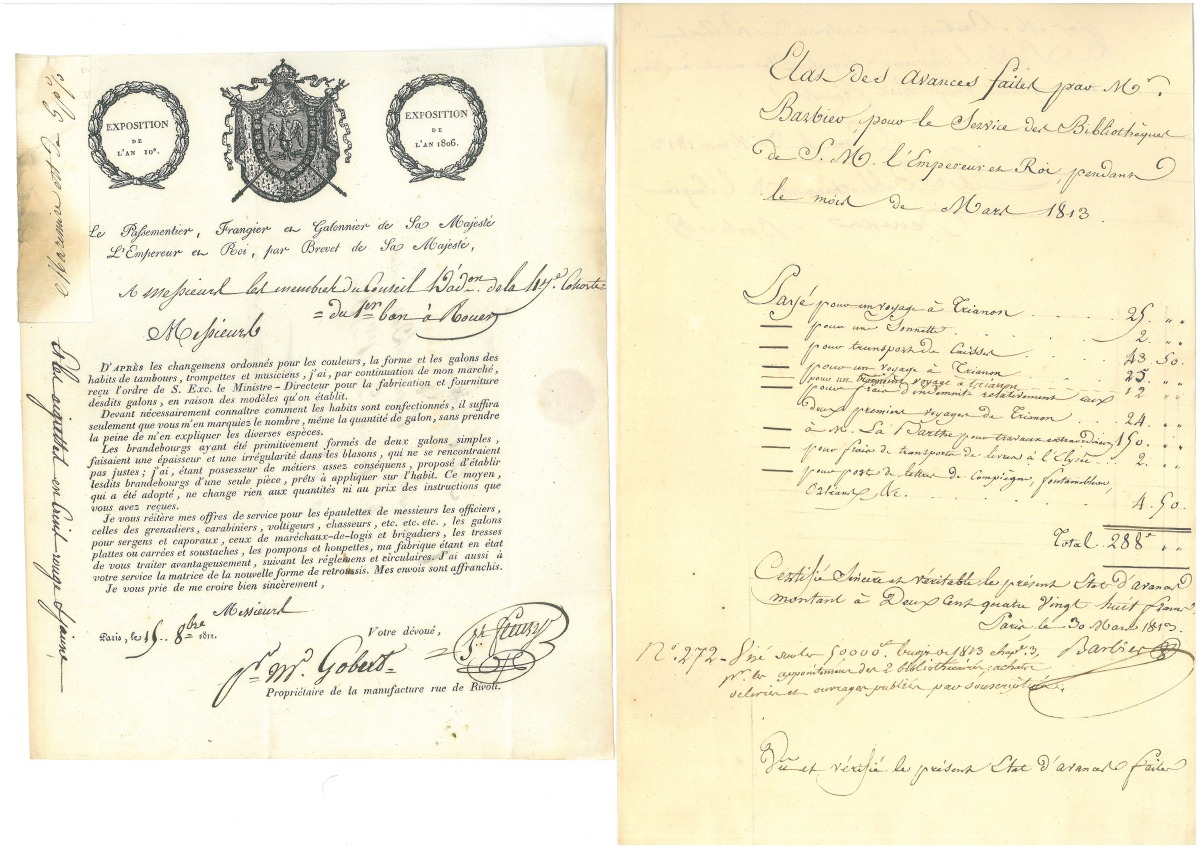 EXPOSITION
DE
L'AN 10e.
EXPOSITION
DE
L'AN 1806.
Le Passementier, Frangier et Galonnier de Sa Majesté
L'Empereur et Roi, par Brevet de Sa Majesté,
A messieurs les membres du Conseil D'adon de la 47e Cohorte
du 1er ban à Rouen
Messieurs
D'APRÈS les changemens ordonnés pour les couleurs, la forme et les galons des
habits de tambours, trompettes et musiciens, j'ai, par continuation de mon marché,
reçu l'ordre de S. Exc. le Ministre-Directeur pour la fabrication et fourniture
desdits galons, en raison des modèles qu'on établit.
Devant nécessairement connaître comment les habits sont confectionnés, il suffira
seulement que vous m'en marquiez le nombre, même la quantité de galon, sans prendre
la peine de m'en expliquer les diverses espèces.
Les brandebourgs ayant été primitivement formés de deux galons simples,
faisaient une épaisseur et une irrégularité dans les blasons, qui ne se rencontraient
pas justes; j'ai, étant possesseur de métiers assez conséquens, proposé d'établir
lesdits brandebourgs d'une seule pièce, prêts à appliquer sur l'habit. Ce moyen,
qui a été adopté, ne change rien aux quantités ni au prix des instructions que
vous avez reçues.
Je vous réitère mes offres de service pour les épaulettes de messieurs les officiers,
celles des grenadiers, carabiniers, voltigeurs, chasseurs, etc. etc. etc., les galons
pour sergens et caporaux, ceux de maréchaux-de-logis et brigadiers, les tresses
plattes ou carrées et soustaches, les pompons et houpettes, ma fabrique étant en état
de vous traiter avantageusement, suivant les réglemens et circulaires. J'ai aussi à
votre service la matrice de la nouvelle forme de retroussis. Mes envois sont affranchis.
Je vous prie de me croire bien sincèrement,
Messieurs
Paris, le 15 8bre 1812.
Votre dévoué,
pr Mr Gobert
Propriétaire de la manufacture rue de Rivoli.
des aigrettes en huit rouge et jaune
Etat des avances faites par Mr.
Barbier pour le Service des Bibliothèques
de S. M. l'Empereur et Roi, pendant
le mois de Mars 1813.
Payé pour un voyage à Trianon 25. " "
— pour un Sonnette 2. " "
— pour transport de Caisses 43. 50.
— pour un voyage à Trianon 25. " "
pour un voyage à trianon 12 " "
— pour frais d'indemnité relativement aux
deux premiers voyages de Trianon 24. " "
— à M. La Barthe pour travaux extraordinaires 150. " "
— pour frais de transports de livres à l'Elysée 2. " "
— pour ports de lettres de Compiègne, fontainebleau,
Orléans &c. 4. 50.
Total 288f " "
Certifié Sincère et véritable le présent Etat d'avances
montant à Deux Cent quatre Vingt huit francs
Paris le 30 Mars 1813.
Barbier
No. 272 - Visé sur les 50000f. budget de 1813 chap. 3,
pr. les appointemens des 2 bibliothécaires, achats
de livres et ouvrages publiés par souscriptions.
Vu et vérifié le présent Etat d'avances faites